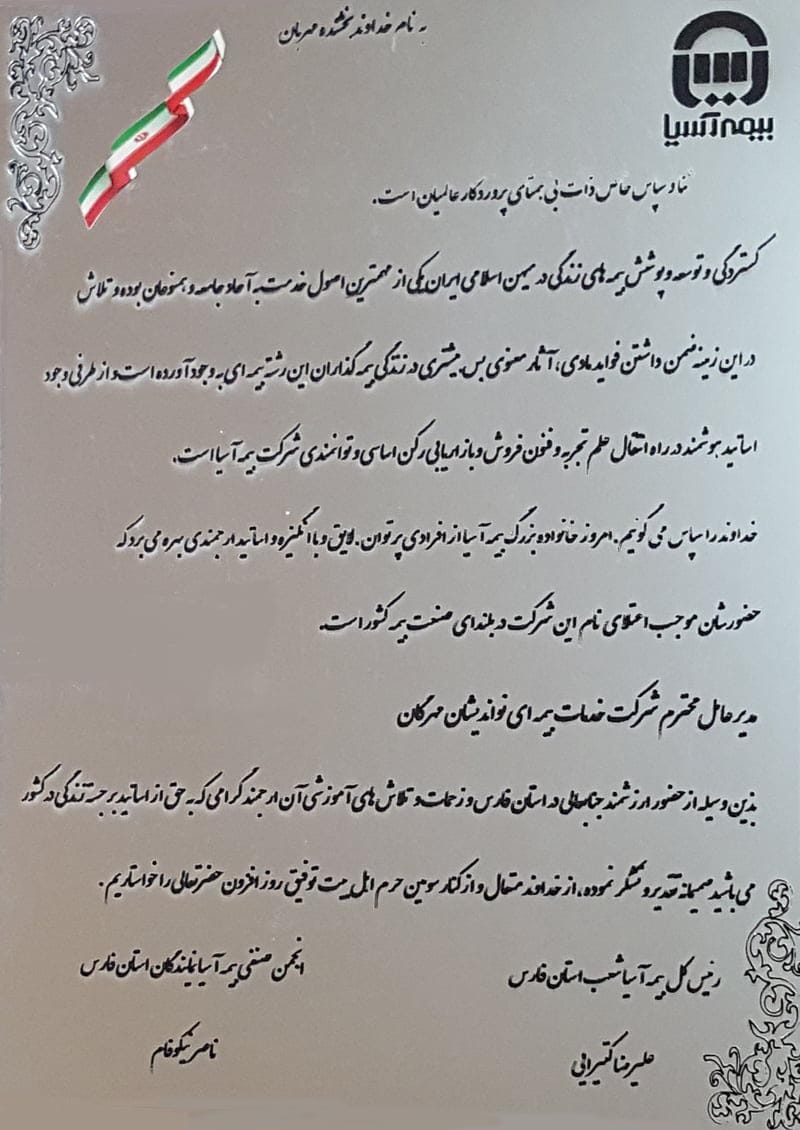 به نام خداوند بخشنده مهربان
بیمه آسیا
ثنا و سپاس خاص ذات بی همتای پروردگار عالمیان است.
گستردگی و توسعه و پوشش بیمه های زندگی در میهن اسلامی ایران یکی از مهمترین اصول خدمت به آحاد جامعه و همنوعان بوده و تلاش
در این زمینه ضمن داشتن فواید مادی، آثار معنوی بس بیشتری در زندگی بیمه گذاران این رشته بیمه ای به وجود آورده است و از طرفی وجود
اساتید هوشمند در راه انتقال علم تجربه و فنون فروش و بازاریابی رکن اساسی و توانمندی شرکت بیمه آسیا است.
خداوند را سپاس می گوئیم. امروز خانواده بزرگ بیمه آسیا از افرادی پرتوان. لایق و با انگیزه و اساتید ارجمندی بهره می برد که
حضورشان موجب اعتلای نام این شرکت در بلندای صنعت بیمه کشور است.
مدیر عامل محترم شرکت خدمات بیمه ای نواندیشان مهرگان
بدین وسیله از حضور ارزشمند جنابعالی در استان فارس و زحمات و تلاش های آموزشی آن ارجمند گرامی که به حق از اساتید برجسته زندگی در کشور
می باشید صمیمانه تقدیر و تشکر نموده، از خداوند متعال و از کنار سومین حرم اهل بیت توفیق روز افزون حضرتعالی را خواستاریم.
رئیس کل بیمه آسیا شعب استان فارس
انجمن صنفی بیمه آسیا نمایندگان استان فارس
علیرضا کتیرایی
ناصر نیکوفام